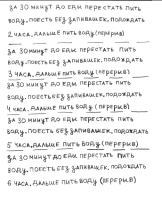 за 30 минут до еды перестать пить
воду, поесть без запивашек, подождать
2 часа, дальше пить воду (перерыв)
за 30 минут до еды перестать пить
воду, поесть без запивашек, подождать
3 часа, дальше пить воду (перерыв)
за 30 минут до еды перестать пить
воду, поесть без запивашек, подождать
4 часа, дальше пить воду (перерыв)
за 30 минут до еды перестать пить
воду, поесть без запивашек, подождать
5 часов, дальше пить воду (перерыв)
за 30 минут до еды перестать пить
воду, поесть без запивашек, подождать
6 часов, дальше пить воду (перерыв)